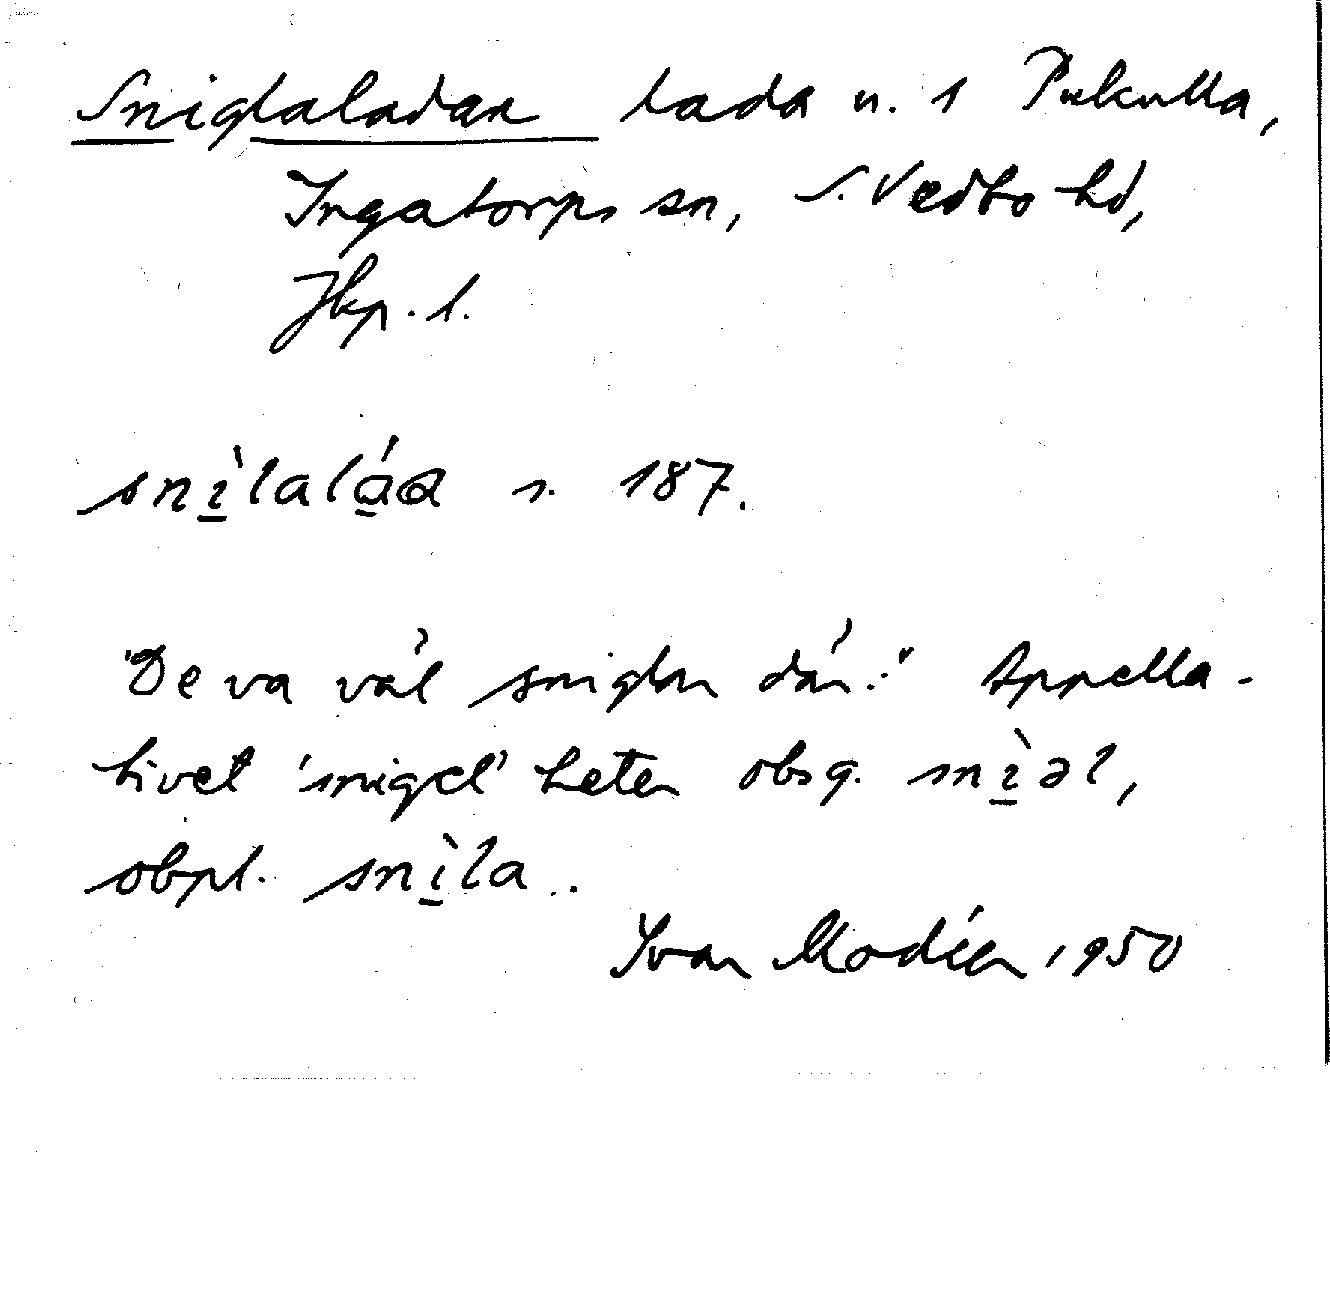 Sniglaladan lada u. 1 Pukulla,
Ingatorps sn, S. Vedbo hd,
Jkp. l.
snìlaláa s. 187.
"De va väl sniglar där." Appella-
tivet 'snigel' heter obsg. snìəl,
obpl. snìla.
Ivar Modéer, 1950